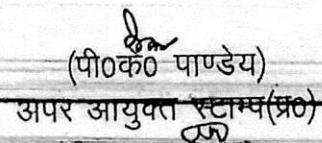 (पी०के० पाण्डेय)
अपर आयुक्त स्टाम्प(प्र०)